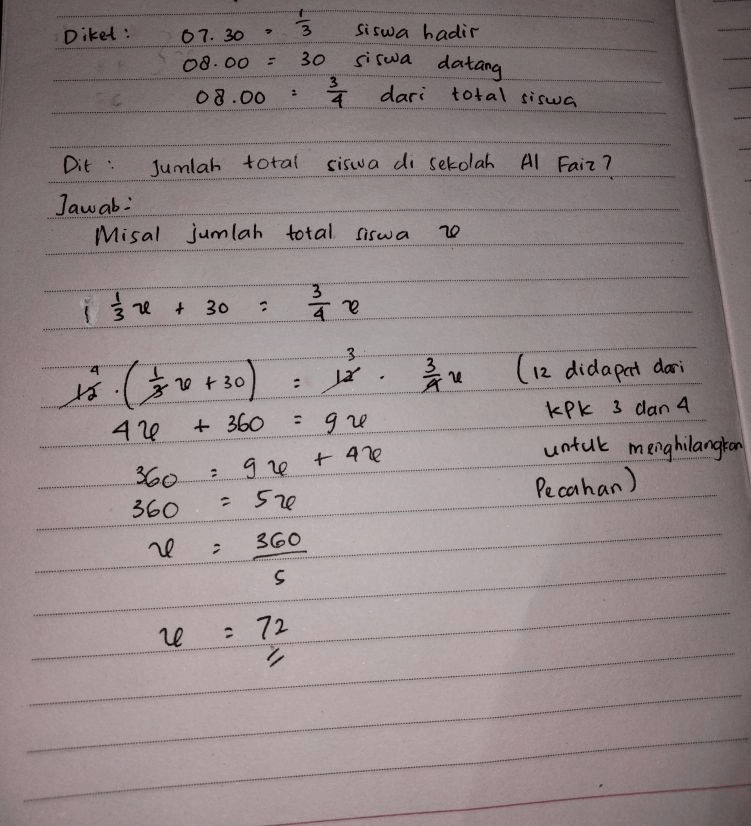 Diket : 07.30 = 1/3 siswa hadir
08.00 = 30 siswa datang
08.00 : 3/4 dari total siswa
Dit : Jumlah total siswa di sekolah Al Faiz?
Jawab :
Misal jumlah total siswa x
1/3 x + 30 = 3/4 x
12 4 . (1/3 x + 30) = 12 3 . 3/4 x (12 didapat dari
4x + 360 = 9x KPK 3 dan 4
360 = 9x + 4x untuk menghilangkan
360 = 5x Pecahan)
x = 360/5
x = 72